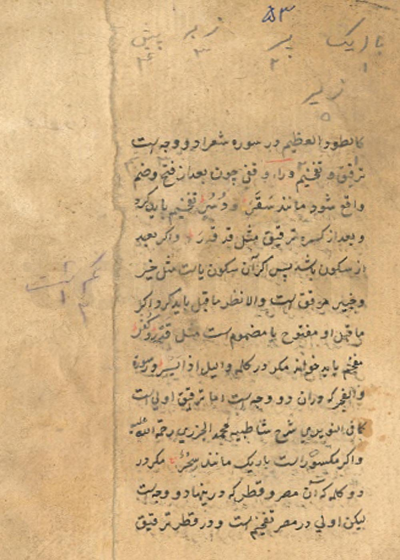 ۵۳
باریک بر زبر پیش
۱ ۲ ۳ ۴
زیر
۵
کالطود العظیم در سوره شعرا دو وجه است
ترقیق و تفخیم و را، وقتی چون بعد از فتح و ضم
واقع شود مانند سَقَر و دُسُر تفخیم باید کرد
و بعد از کسره ترقیق مثل قد قدر و اکر بعد
از سکون باشد پس اکر آن سکون یاست مثل خیر
و خبیر مرقق است و الا نظر ماقبل باید کرد اکر
ماقبل او مفتوح یا مضموم است مثل
مفخم باید خواند مکر در کلمه و الیل اذا یسر و سوره
والفجر که در آن دو وجه است اما ترقیق اولی است
کافی النویری شرح شاطبیه محمد الجزری رحمة الله علیه
و اکر مکسور است باریک مانند سِحْر مکر در
دو کلمه که آن مصر و قطر که در اینها دو وجه است
لیکن اولی در مصر تفخیم است و در قطر ترقیق